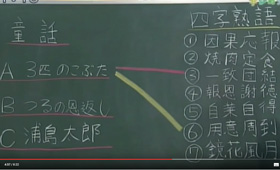 童話
A 3匹のこぶた
B つるの恩返し
C 浦島太郎
四字熟語
① 因果応報
② 焼肉定食
③ 一致団結
④ 報恩謝徳
⑤ 自業自得
⑥ 用意周到
⑦ 鏡花風月